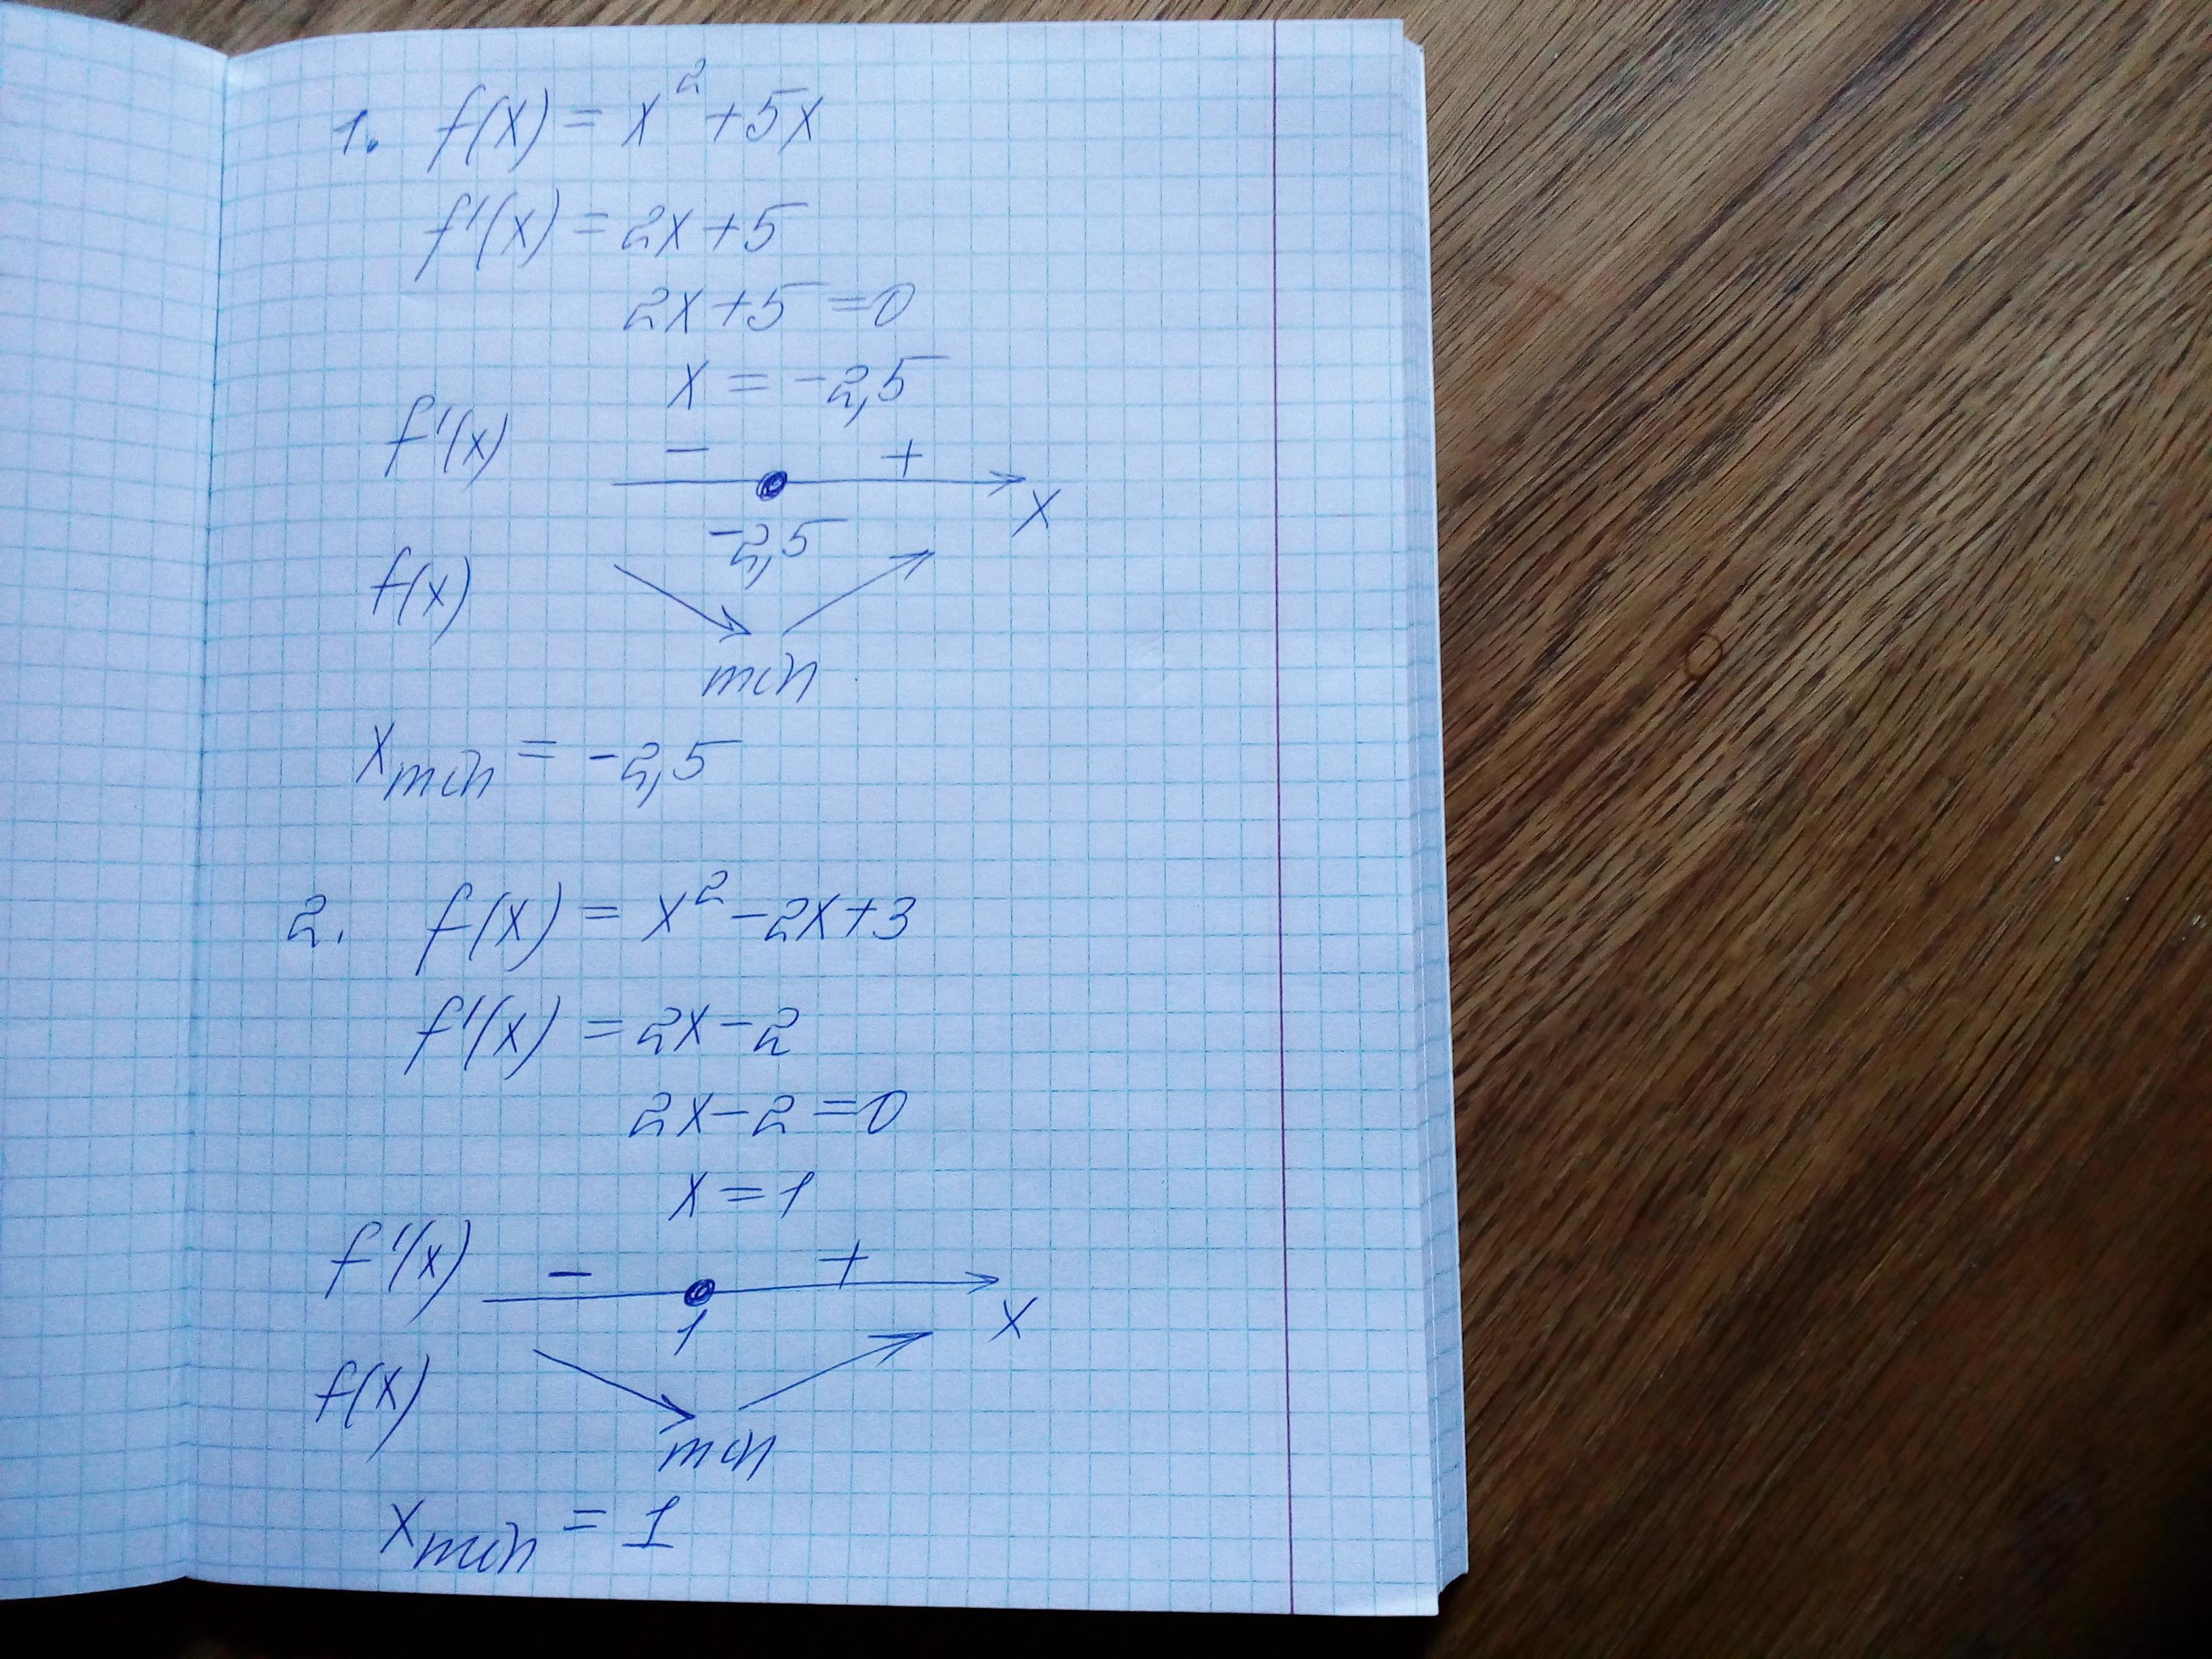 1. f(x) = x² + 5x
f'(x) = 2x + 5
2x + 5 = 0
x = -2,5
f'(x) - +
x
-2,5
f(x)
min
x min = -2,5
2. f(x) = x² - 2x + 3
f'(x) = 2x - 2
2x - 2 = 0
x = 1
f'(x) - +
1 x
f(x)
min
x min = 1